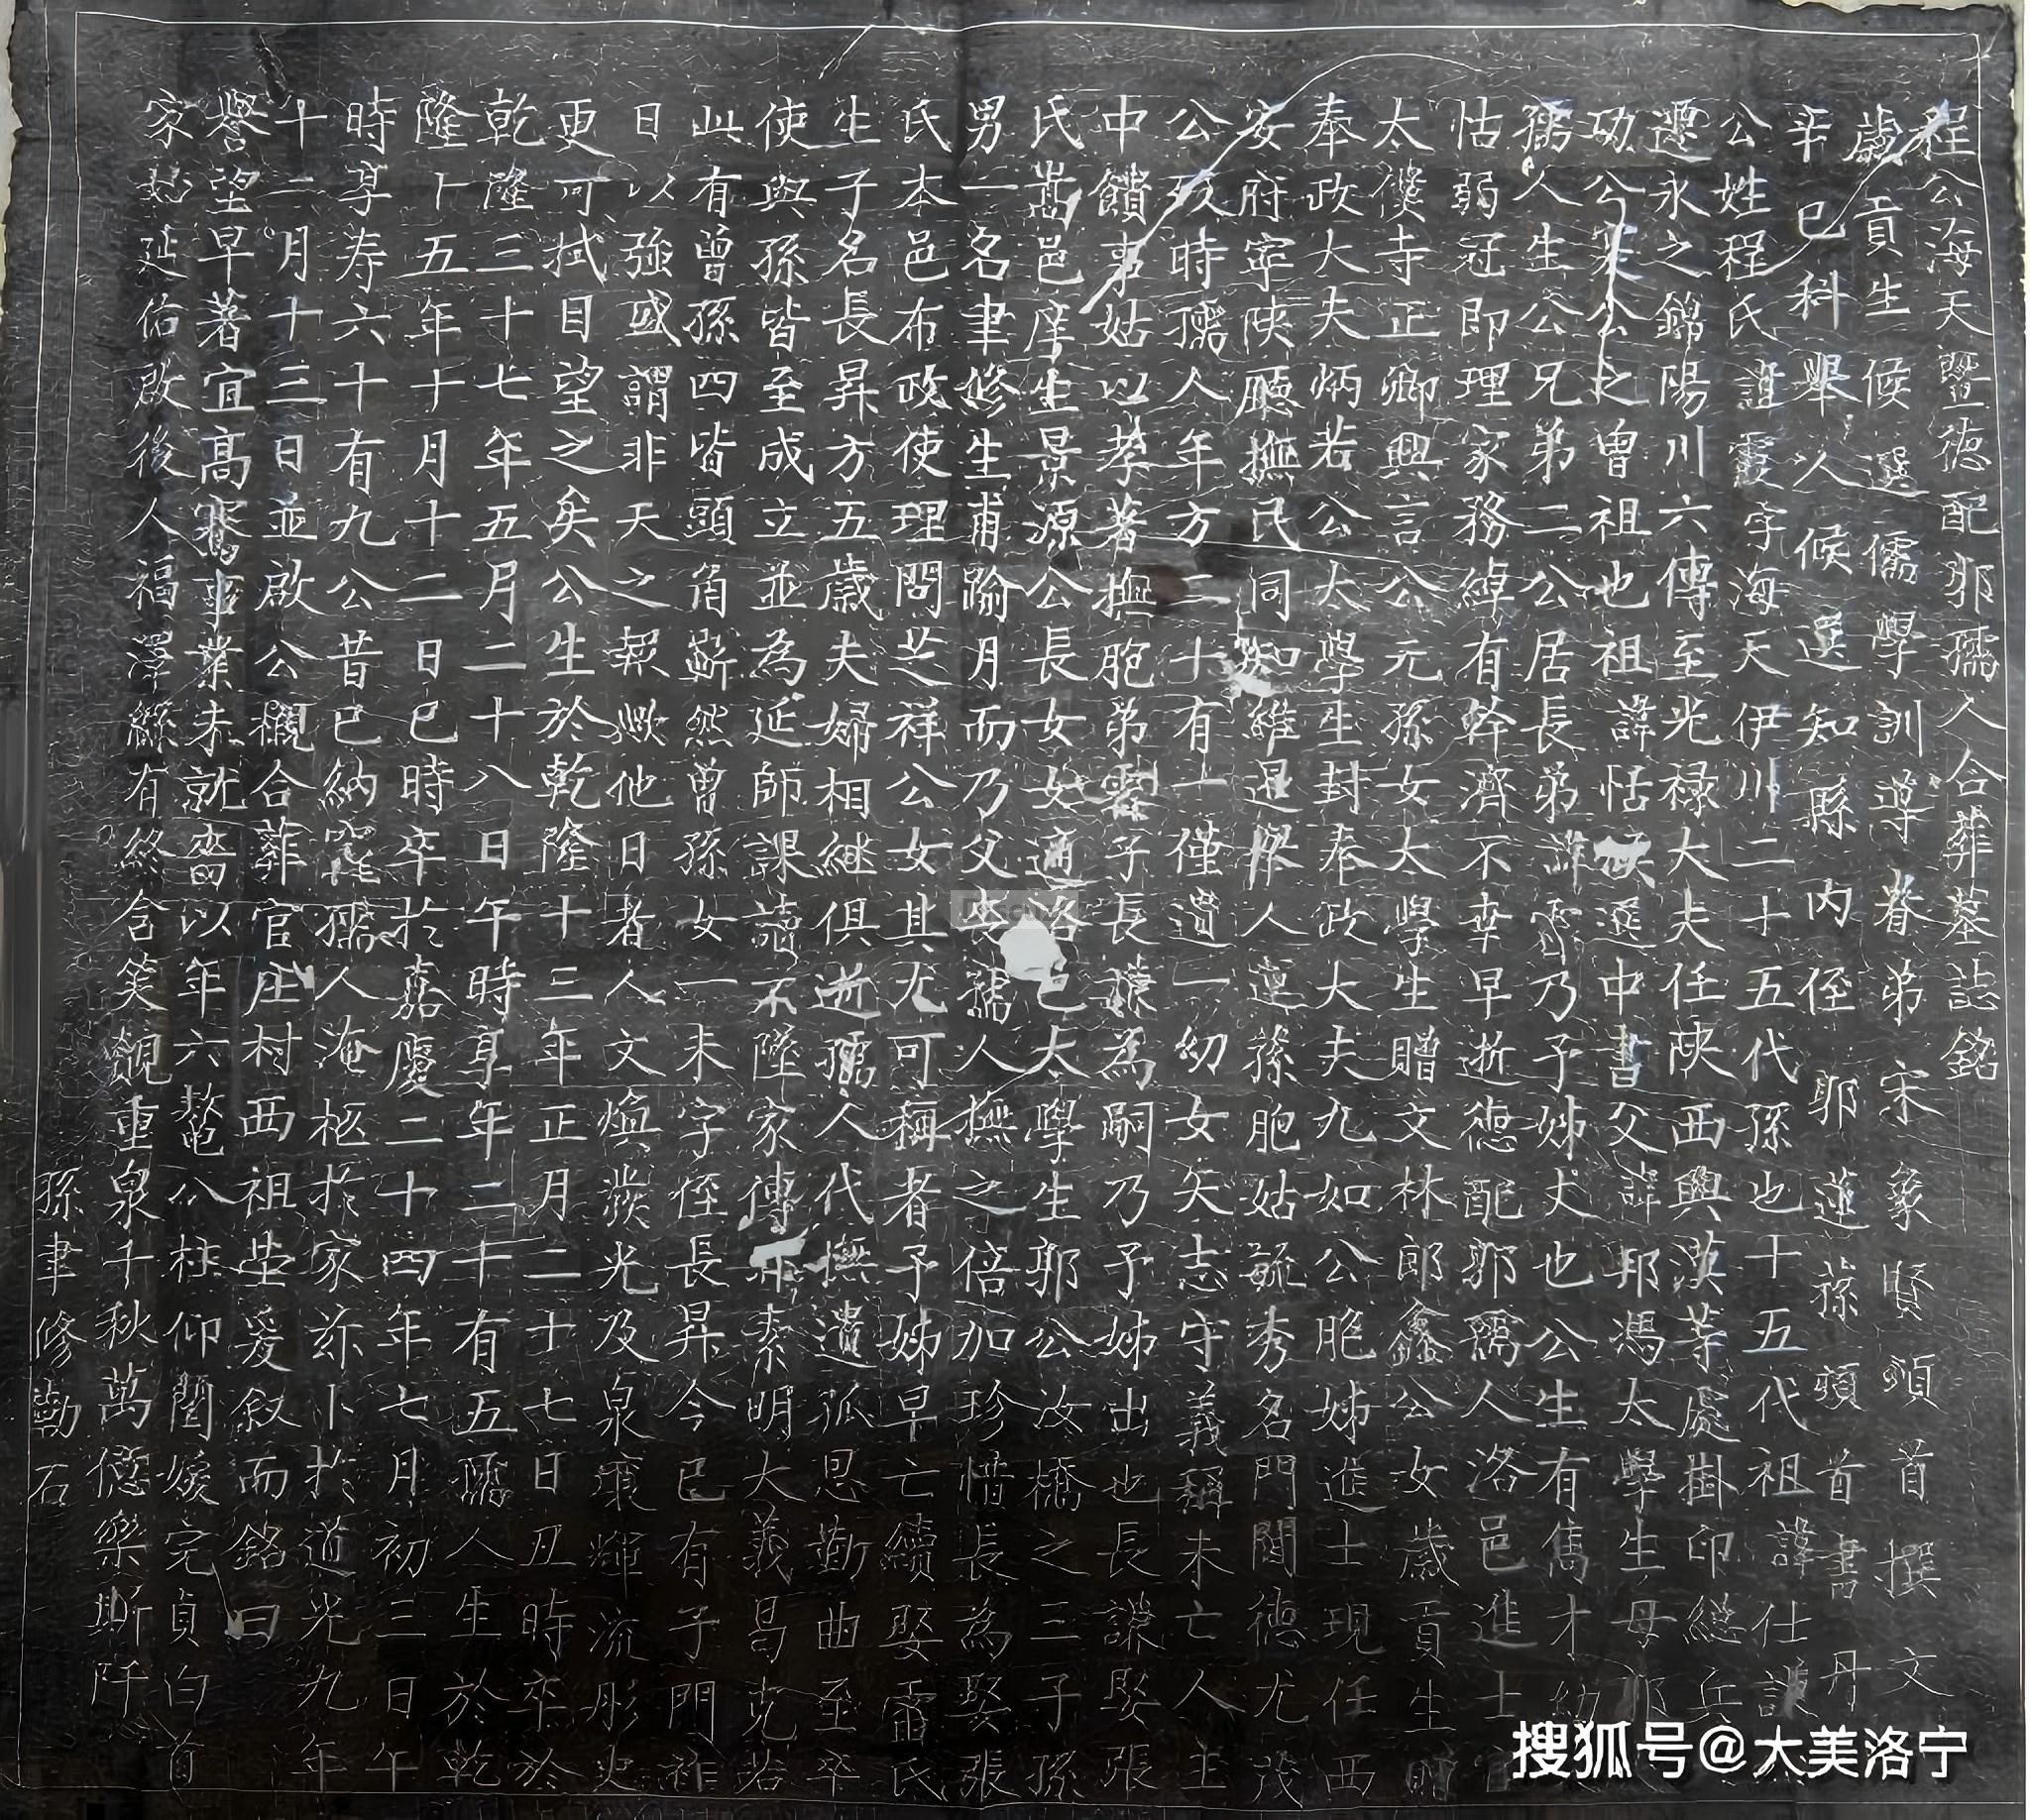 程公海天暨德配郭孺人合葬墓誌銘
歲貢生候選儒學訓導眷弟宋象賢頓首撰文
辛巳科舉人候選知縣內侄郭蓮蓀頓首書丹
公姓程氏諱霞字海天伊川二十五代孫也十五代祖諱仕
遷永之錦陽川六傳至光祿大夫任陝西興漢等處掛印總兵
功公寀公之曾祖也祖諱恬候選中書父諱邦馮太學生母
孺人生公兄弟二公居長弟諱霄乃予姊丈也公生有雋才幼
怙弱冠即理家務綽有幹濟不幸早逝德配郭孺人洛邑進士
太僕寺正卿興言公元孫女太學生贈文林郎鑫公女歲貢生
奉政大夫炳若公太學生封奉政大夫九如公胞姊進士現任西
安府寧陝廳撫民同知維是舉人蓮蓀胞姑毓秀名門閫德尤茂
公歿時孺人年方二十有一僅遺一幼女矢志守義稱未亡人主
中饋事姑以孝著撫胞弟霨子長讓為嗣乃予姊出也長讓娶張
氏嵩邑庠生景源公長女女適洛邑太學生郭公汝橋之三子孫
男一名聿修生甫踰月而乃父卒孺人撫之倍加珍惜長為娶張
氏本邑布政使理問芝祥公女其尤可稱者予姊早亡續娶雷氏
生子名長昇方五歲夫婦相繼俱逝孺人代撫遺孤思勤曲至卒
使與孫皆至成立並為延師課讀不墜家傳不素明大義曷克若
此有曾孫四皆頭角嶄然曾孫女一未字侄長昇今已有子門祚
日以強盛謂非天之報歟他日者人文煥發光及泉壤輝流彤史
更可拭目望之矣公生於乾隆十三年正月二十七日丑時卒於
乾隆三十七年五月二十八日午時享年二十有五孺人生於乾
隆十五年十月十二日巳時卒於嘉慶二十四年七月初三日午
時享寿六十有九公昔已納窆孺人淹柩於家茲卜於道光九年
十二月十三日並啟公櫬合葬官庄村西祖塋爰敘而銘曰
譽望早著宜高騫事業未就嗇以年六鰲八柱仰閨媛完貞白首
家姑延佑啟後人福澤緜有終含笑覩重泉千秋萬億樂斯阡
孫聿修勒石
搜狐号@大美洛宁